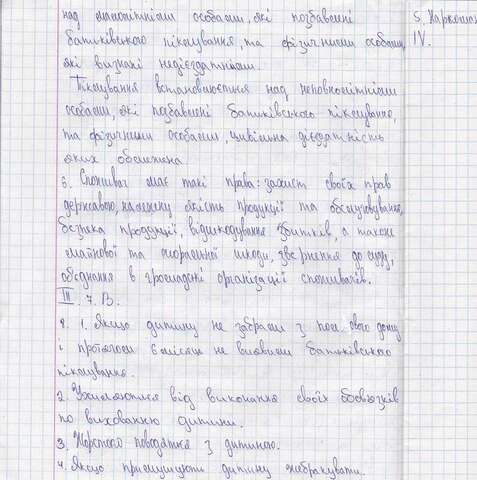 над малолітніми особами, які позбавлені
батьківського піклування, та фізичними особами,
які визнані недієздатними.
Піклування встановлюється над неповнолітніми
особами, які позбавлені батьківського піклування,
та фізичними особами, цивільна дієздатність
яких обмежена
6. Споживач має такі права: захист своїх прав
державою, належну якість продукції та обслуговування,
безпека продукції, відшкодування збитків, а також
майнової та моральної шкоди, звернення до суду,
об'єднання в громадські організації споживачів.
III. 7. В.
1. Якщо дитину не забрали з пол. ового дому
і протягом 6 місяців не виявили батьківського
піклування.
2. Ухиляються від виконання своїх обов'язків
по вихованню дитини.
3. Жорстоко поводяться з дитиною.
4. Якщо примушують дитину жебракувати.
5. Наркоман
IV.